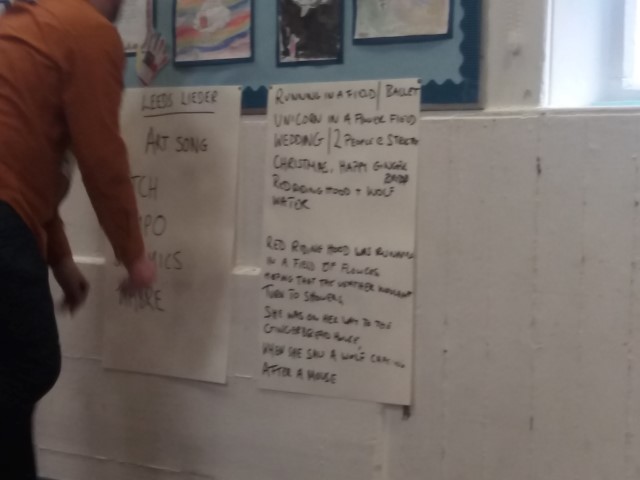 LEEDS LIEDER
ART SONG
TCH
PO
MICS
MBRE
RUNNING IN A FIELD / BALLET
UNICORN IN A FLOWER FIELD
WEDDING / 2 PEOPLE
CHRISTMAS, HAPPY GINGER
BREAD
RED RIDING HOOD + WOLF
WATER
RED RIDING HOOD WAS RUNNING
IN A FIELD OF FLOWERS
HOPING THAT THE WEATHER WOULDN'T
TURN TO SHOWERS
SHE WAS ON HER WAY TO THE
GINGERBREAD HOUSE,
WHEN SHE SAW A WOLF CHASING
AFTER A MOUSE